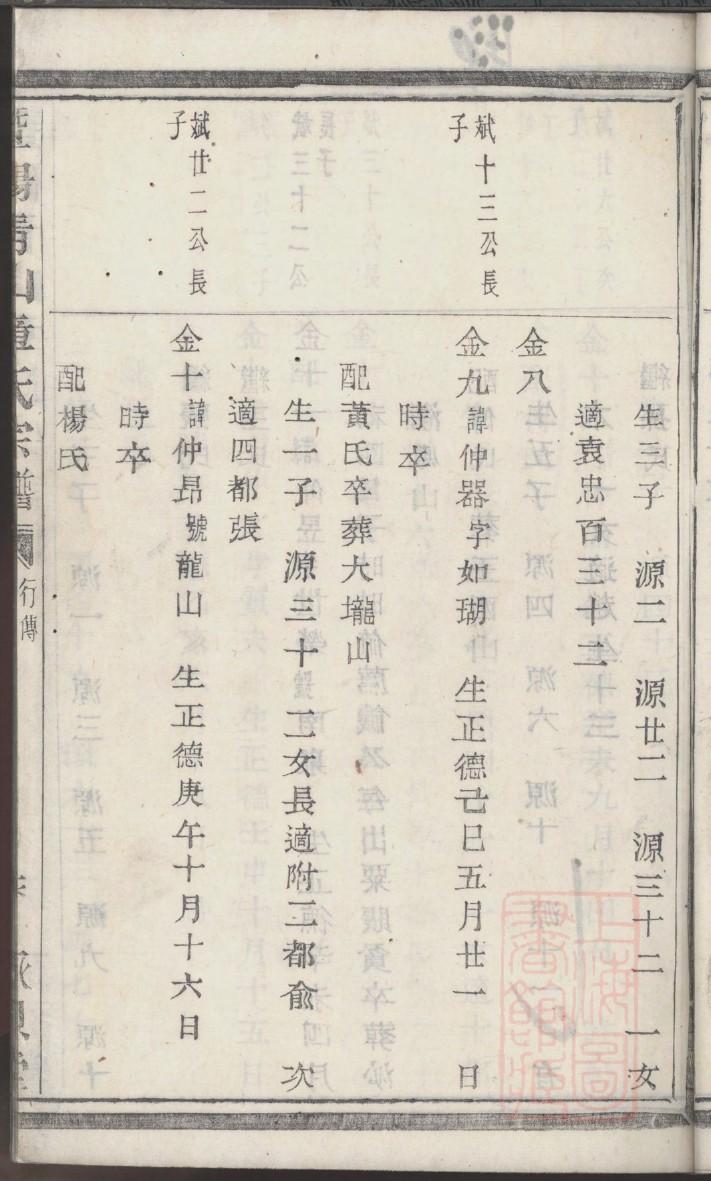 生三子 源二 源廿二 源三十二 一女
適袁忠百三十二
金八
斌十三公長
子
金九諱仲器字如瑚 生正德己巳五月廿一日
時卒
配黃氏卒葬大壠山
生一子 源三十 二女長適附二都俞 次
適四都張
斌廿二公長
子
金十諱仲昂號龍山 生正德庚午十月十六日
時卒
配楊氏
山 氏宗譜 行傳